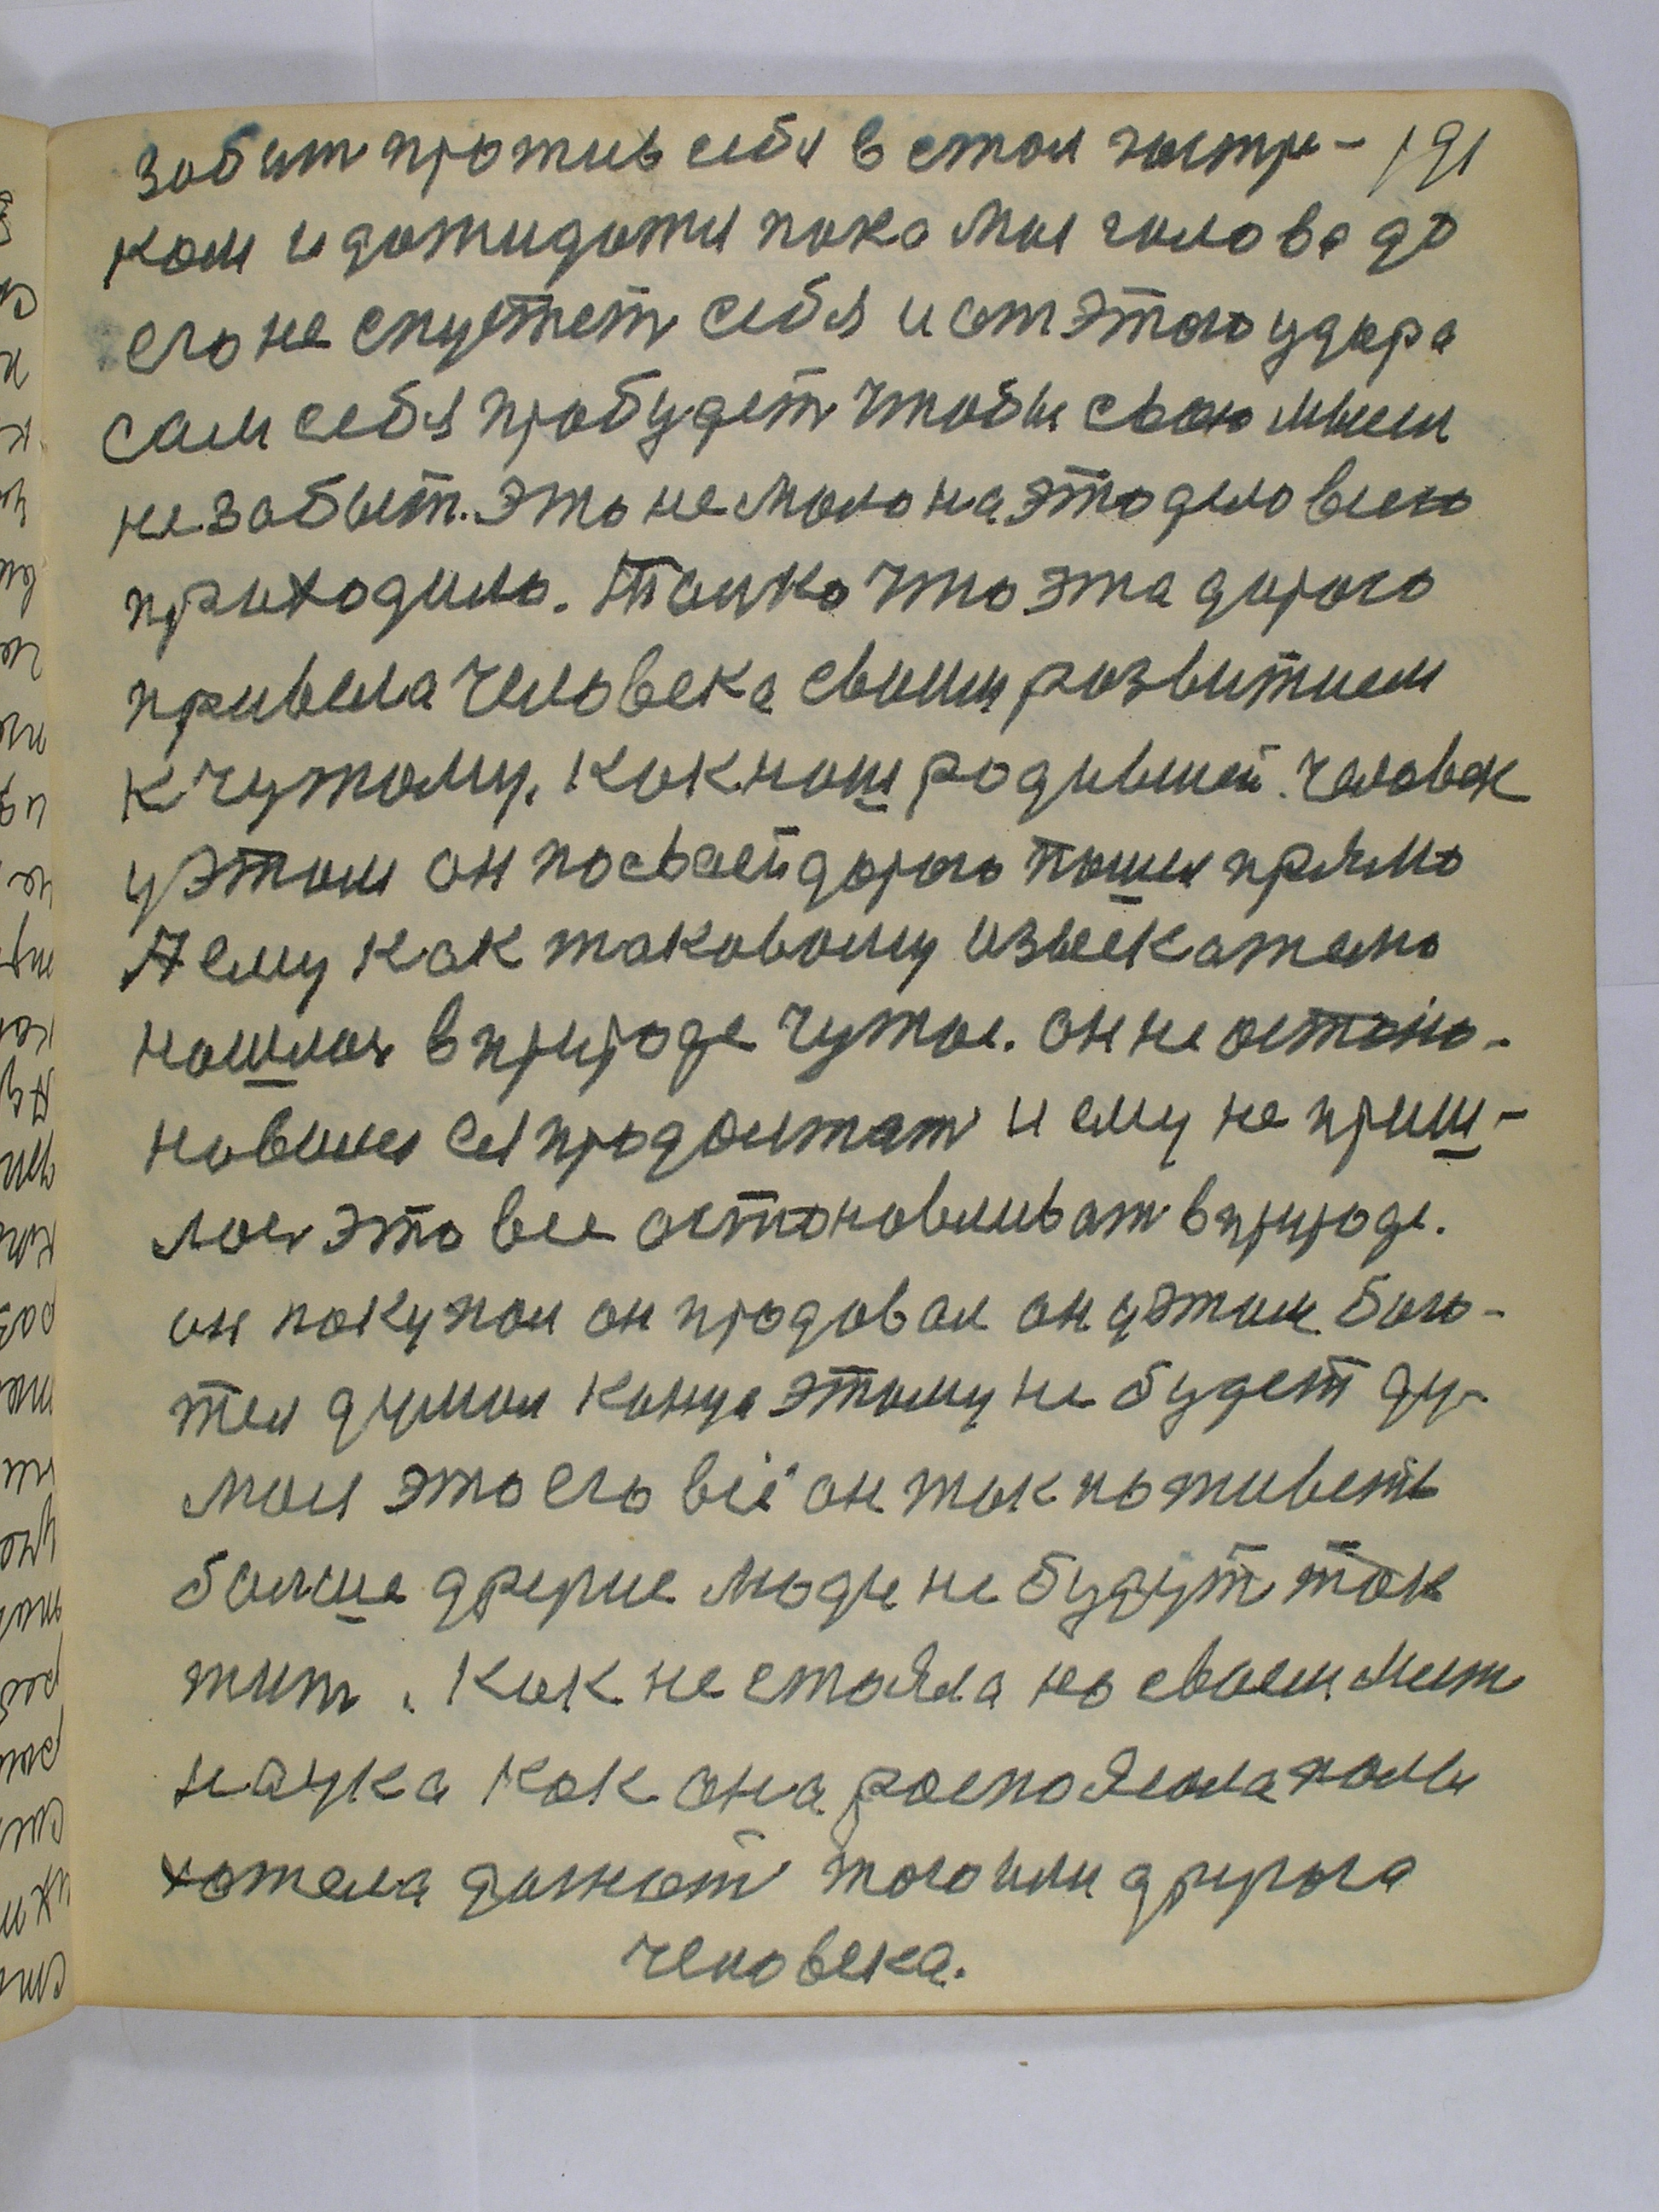 забит против себя в стол гостри- 191
ком и дожидатся пока моя голова до
его не спустет себя и от этого удара
сам себя пробудет чтобы свою мысл
не забыт. Это не мало на это дело всего
приходило. Только что эта дорога
привела человека своим развитием
к чужому. Как наш родившей. человек
у этом он по своей дорого пошел прямо
А ему как таковому изыскателю
нашлос в природе чужое. он не остано-
новился продолжат и ему не приш-
лос это все остоновливат в природе.
он покупал он продовал он у этом бога-
тел думал конца этому не будет ду-
мал это его всё он так поживеть
болше другие люди не будут так
жит. Как не стояла на своем мест
наука как она распоясола полы
хотела догнат того или другого
человека.